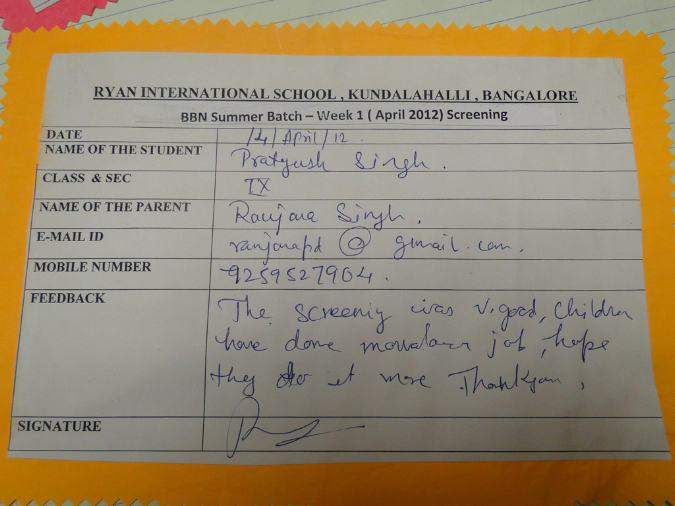 RYAN INTERNATIONAL SCHOOL , KUNDALAHALLI , BANGALORE
BBN Summer Batch – Week 1 ( April 2012) Screening
DATE 14/April/12.
NAME OF THE STUDENT Pratyush Singh.
CLASS & SEC IX
NAME OF THE PARENT Ranjana Singh.
E-MAIL ID ranjanapd @ gmail.com.
MOBILE NUMBER 9259527904.
FEEDBACK The screening was v.good, Children
have done job, hope
they do it more Thankyou,
SIGNATURE